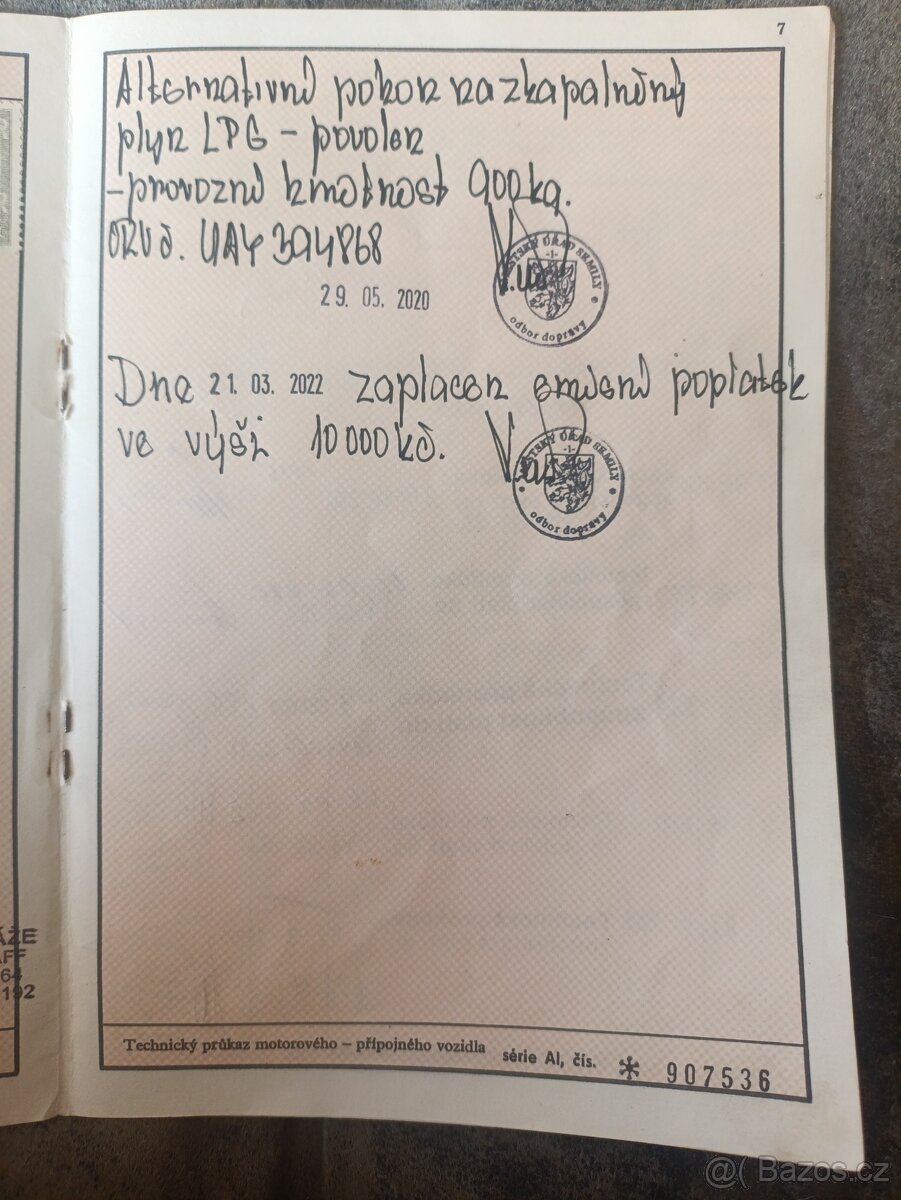 7
Alternativní pohon na zkapalněný
plyn LPG – povolen
– provozní hmotnost 900kg.
ORV č. UAY394868
29. 05. 2020
MĚSTSKÝ ÚŘAD SEMILY
-1-
odbor dopravy
Dne 21. 03. 2022 zaplacen emisní poplatek
ve výši 10 000 kč.
MĚSTSKÝ ÚŘAD SEMILY
-1-
odbor dopravy
ÁŽE
AFF
64
192
Technický průkaz motorového – přípojného vozidla série AI, čís. 907536
@( Bazos.cz